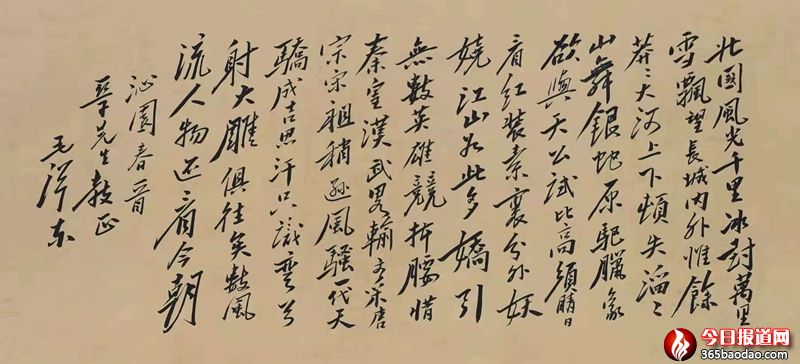 北國風光千里冰封萬里
雪飄望長城內外惟餘
莽〻大河上下頓失滔〻
山舞銀蛇原駈臘象
欲與天公試比高須晴日
看紅裝素裹分外妖
嬈江山如此多嬌引
無數英雄競折腰惜
秦皇漢武略輸文采唐
宗宋祖稍遜風騷一代天
驕成吉思汗只識彎弓
射大雕俱往矣數風
流人物还看今朝
沁園春
先生教正
毛泽东
今日报道网
365baodao.com